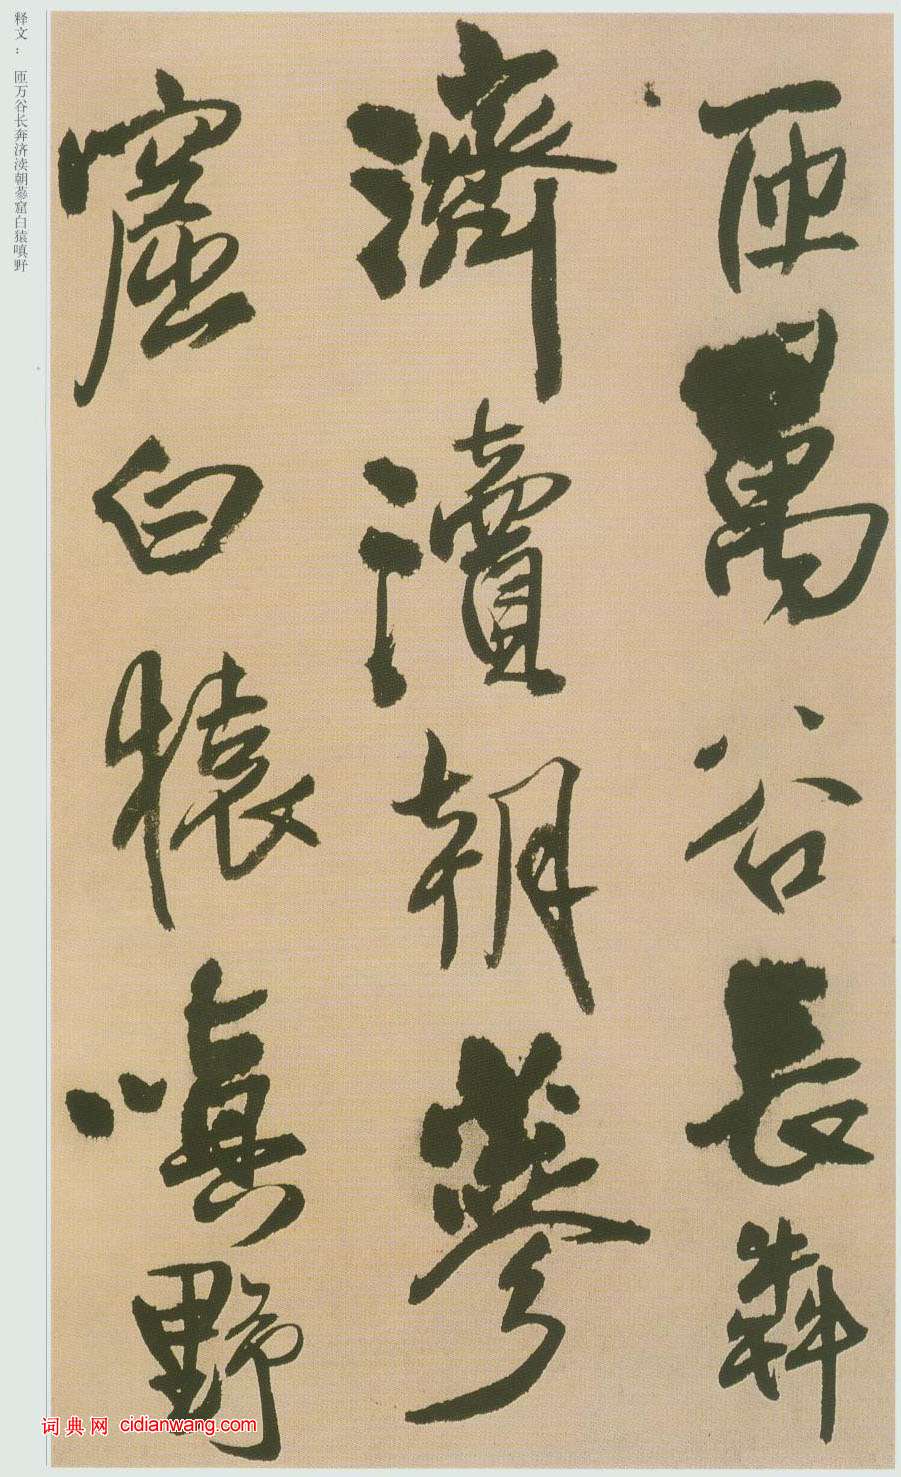 匝萬谷長犇
濟瀆朝蓡
窟白猿嗔野
释文： 匝万谷长奔济渎朝蓡窟白猿嗔野
词典网 cidianwang.com